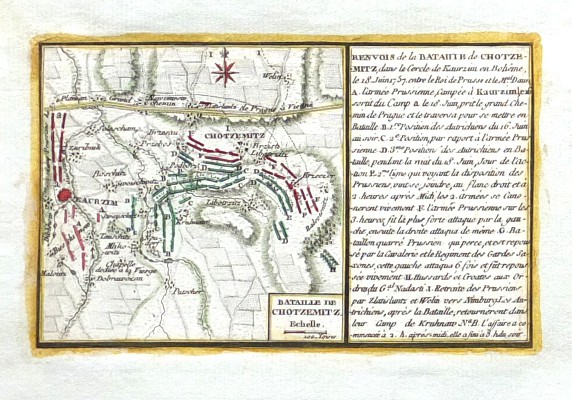 RENVOIS de la BATAILLE de CHOTZE-
MITZ, dans le Cercle de Kaurzim en Bohême,
le 18 Juin 1757, entre le Roi de Prusse et le Mal Daun
A. l'armée Prussienne, campée à Kaurzim, en
sortit du Camp a le 18 Juin, prit le grand Che-
min de Prague et le traversa pour se mettre en
Bataille B. 1ere Position des Autrichiens du 16 Juin
au soir. C. 2e Position, par raport à l'armée Prus-
sienne. D. 3me Position des Autrichiens en Ba-
taille, pendant la nuit du 18 Juin, Jour de l'ac-
tion. E. 2me ligne qui voyant la disposition des
Prussiens vint se joindre, au flanc droit et à
2 heures après Midi les 2 Armées se Cano-
nerent vivement F. l'armée Prussienne sur les
3 heures fit la plus forte attaque par la gau-
che, ensuite la droite attaqua de même. G. Ba-
taillon quarré Prussien qui perce, et est repous-
sé par la Cavalerie et le Regiment des Gardes Sa-
xones, cette gauche attaqua 6 fois et fut repous-
sée vivement H. Hussards et Croates aux Or-
dres du Gal Nadasti. I. Retraite des Prussiens
par Zlatisluntz et Weln vers Nimburg. Les Au-
trichiens, après la Bataille, retournerent dans
leur Camp de Kruhnaw No B. L'affaire a co-
mmencé à 2 h. après-midi, elle a fini à 8 h du soir
Weln
Planian
Grand Chemin
de Prague à Vienne
Brzesau
Przebos
CHOTZEMITZ
Brzisti
Krzeczor
Zaribnick
Boschitz
KAURZIM
Libodritz
Swogschitz
Malotitz
Chapelle
dediée à la Vierge
Dobrawrzan
Putscher
BATAILLE DE
CHOTZEMITZ.
Echelle.